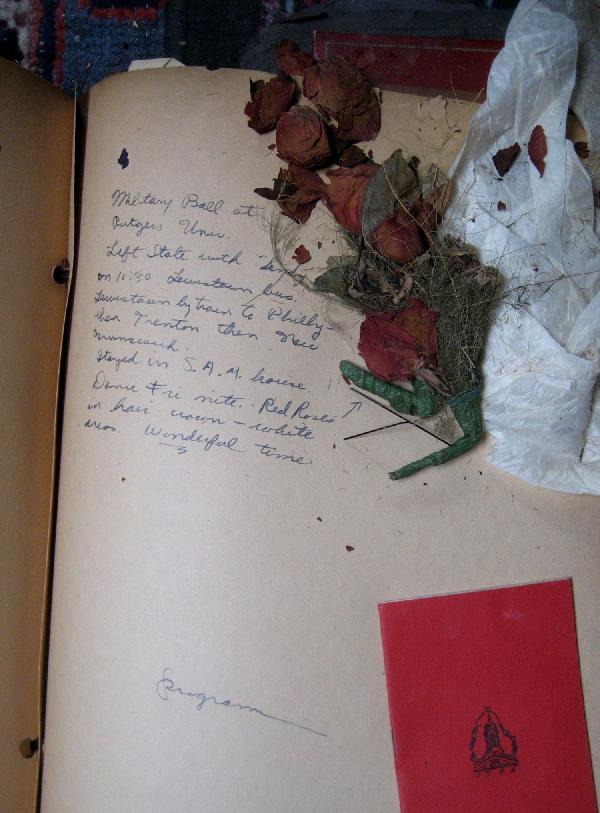 Military Ball at
Rutgers Univ.
Left State with
on 10:30 Lewistown bus.
Lewistown by train to Philly-
then Trenton then New
Brunswick.
Stayed in S.A.M. house
Dance Fri nite. Red Roses ↑
in hair crown - white
Wonderful time
Program